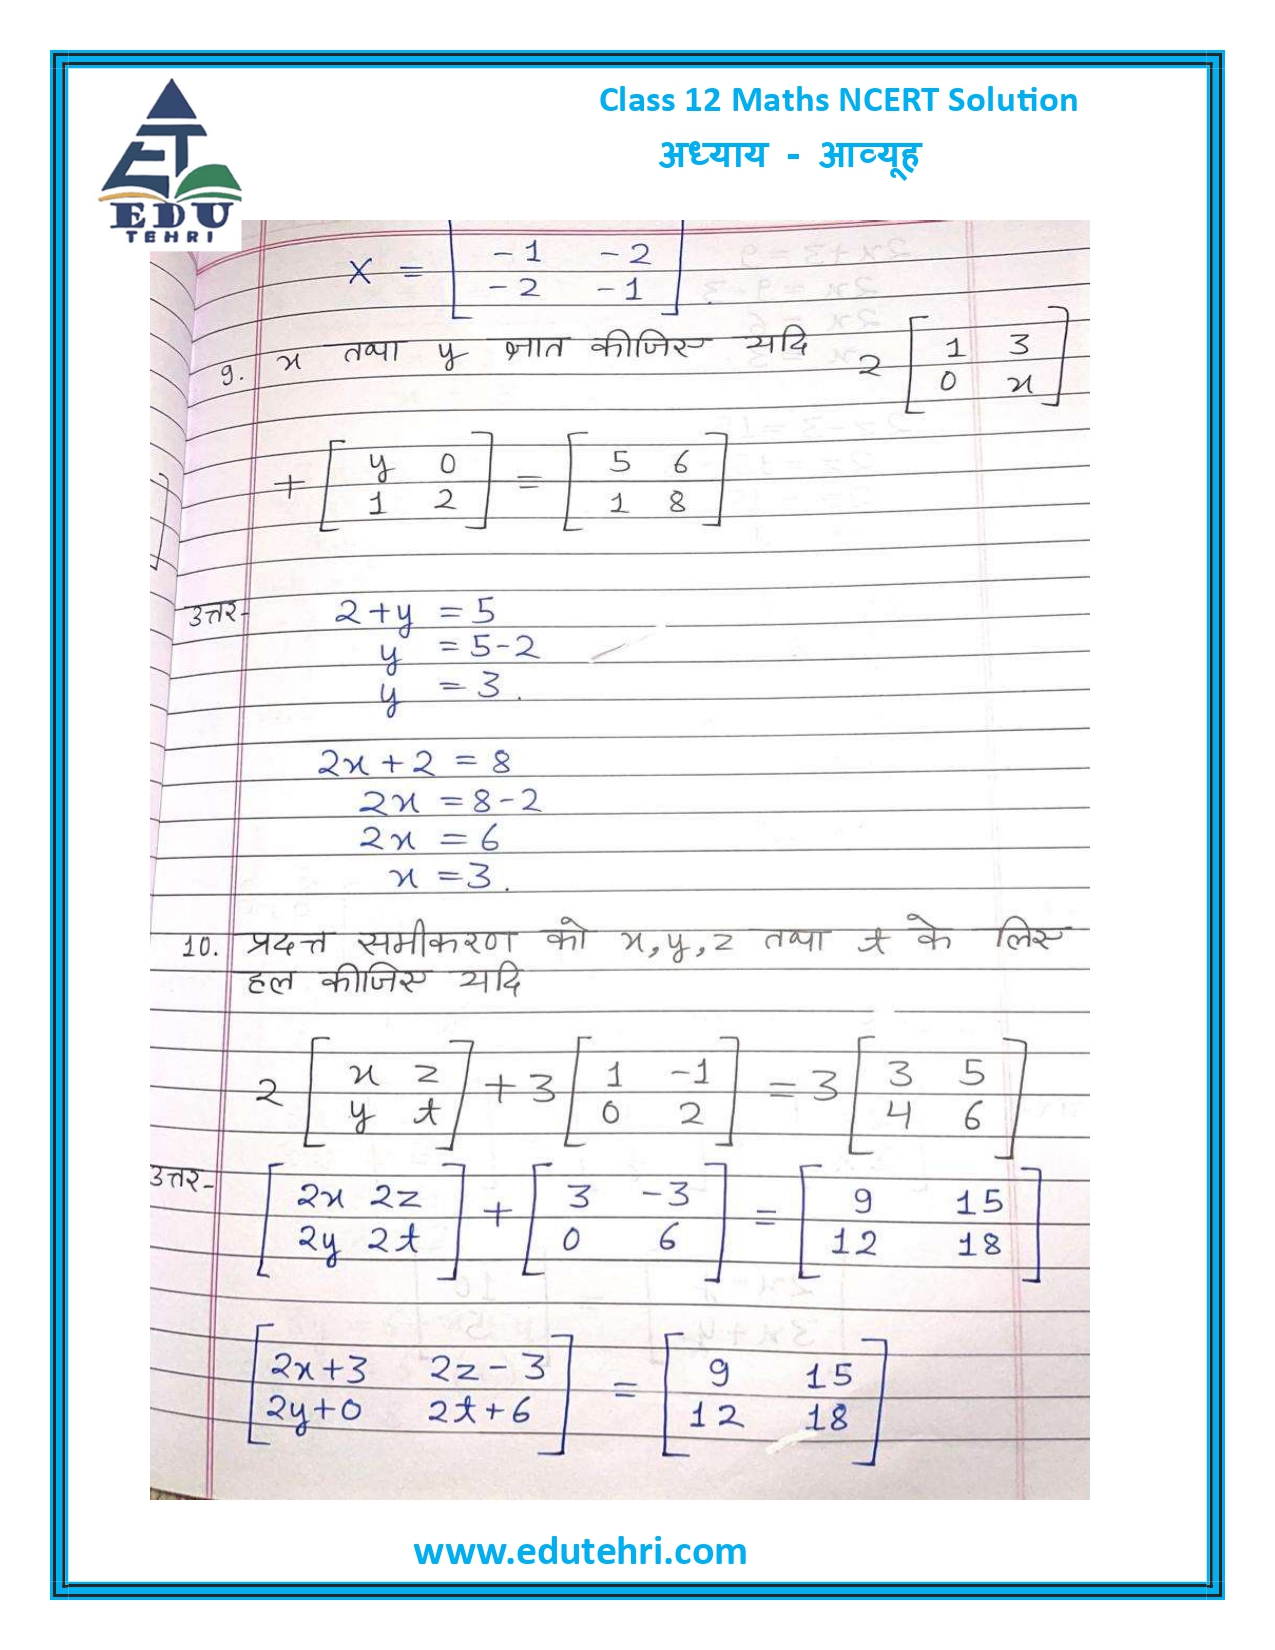 Class 12 Maths NCERT Solution
अध्याय - आव्यूह
EDU
TEHRI
x = [ -1 -2
-2 -1 ]
9. x तथा y ज्ञात कीजिए यदि 2 [ 1 3
0 x ]
+ [ y 0
1 2 ] = [ 5 6
1 8 ]
उत्तर- 2+y = 5
y = 5-2
y = 3.
2x+2 = 8
2x = 8-2
2x = 6
x = 3.
10. प्रदत्त समीकरण को x, y, z तथा t के लिए
हल कीजिए यदि
2 [ x z
y t ] + 3 [ 1 -1
0 2 ] = 3 [ 3 5
4 6 ]
उत्तर- [ 2x 2z
2y 2t ] + [ 3 -3
0 6 ] = [ 9 15
12 18 ]
[ 2x+3 2z-3
2y+0 2t+6 ] = [ 9 15
12 18 ]
www.edutehri.com